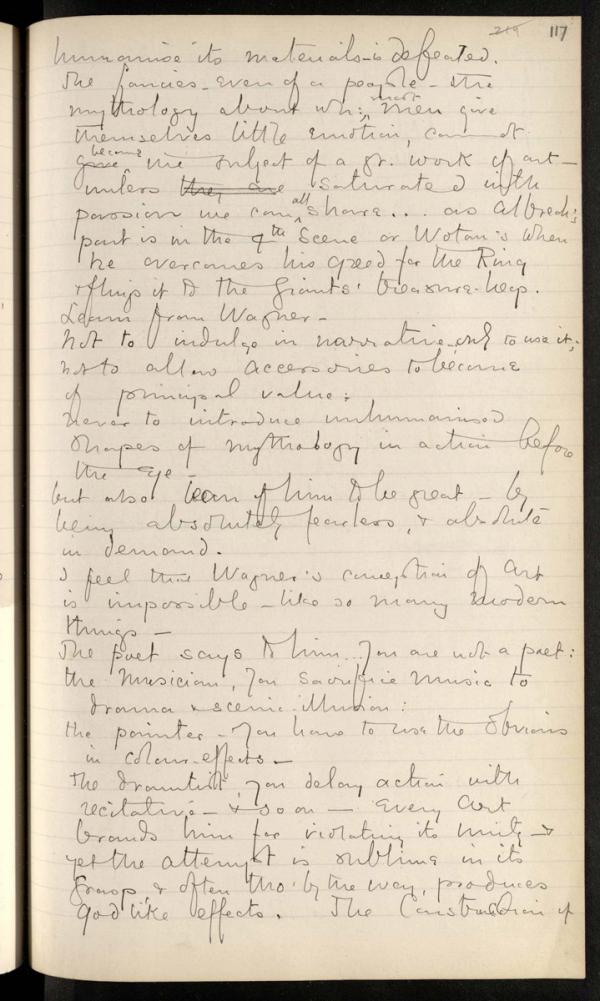 219 117
humanise its materials is defeated.
The fancies - even of a people - the
mythology about wh: most men give
themselves little emotion, cannot
give become the subject of a gr. work of art -
unless they are saturated with
passion we can all share... as Alberich's
part is in the 4th Scene or Wotan's when
he overcomes his greed for the Ring
& flings it to the Giants' treasure-heap.
Learn from Wagner -
Not to indulge in narrative only to use it;
not to allow accessories to become
of principal value;
never to introduce unhumanised
shapes of mythology in action before
the eye -
but also learn of him to be great - by
being absolutely fearless, & absolute
in demand.
I feel that Wagner's conception of Art
is impossible - like so many modern
things -
The poet says to him. You are not a poet:
the musician, You sacrifice music to
drama & scenic illusion:
the painter - You have to use the obvious
in colour-effects -
the dramatist, you delay action with
recitative - & so on - Every Art
brands him for violating its unity - &
yet the attempt is sublime in its
grasp, & often tho' by the way, produces
godlike effects. The Construction of